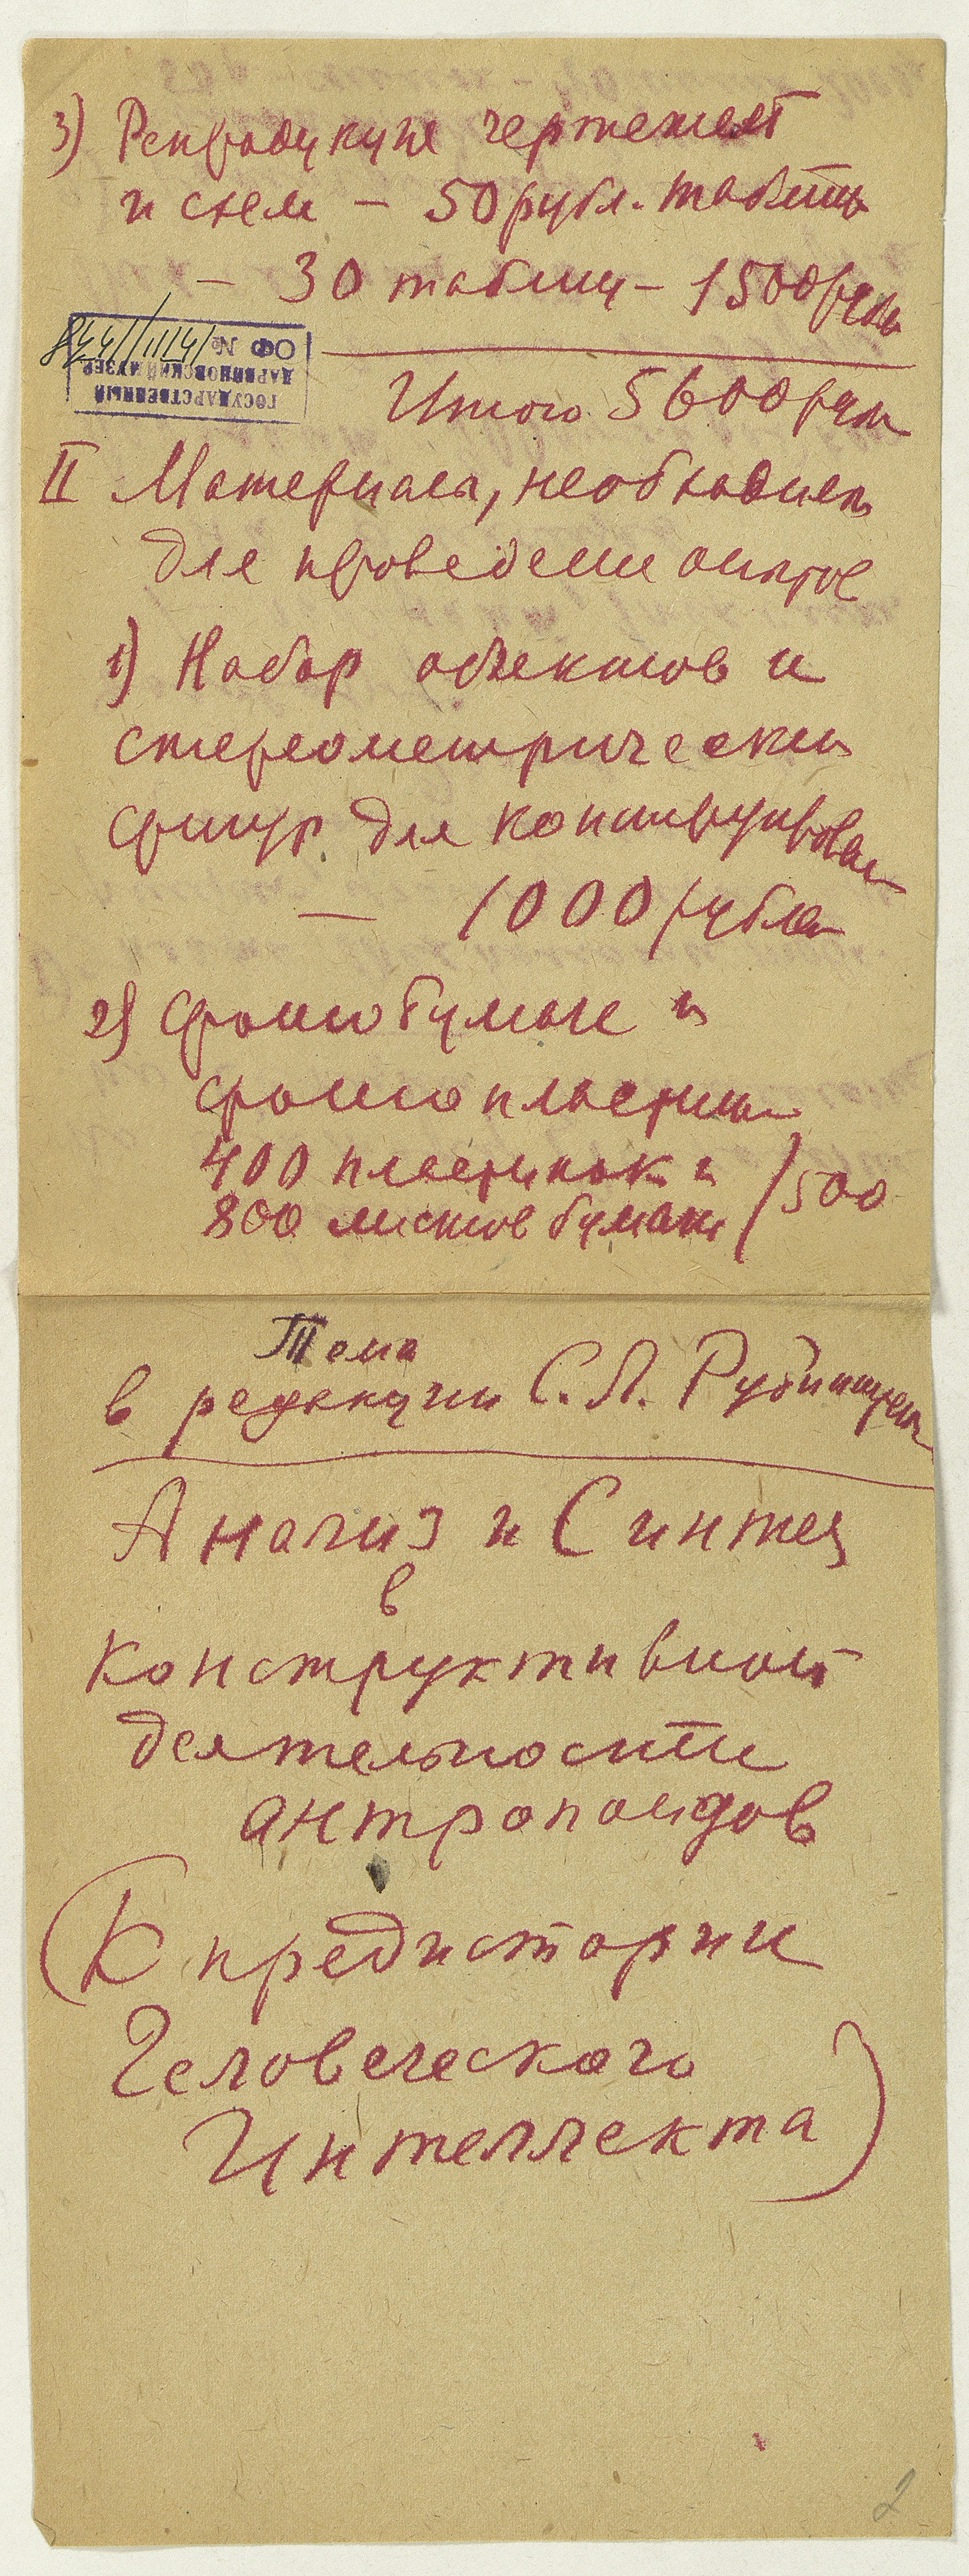 3) Репродукция чертежей
и схем – 50 рубл. таблица
– 30 таблиц – 1500 рубл
ОФ №
ДАРВИНОВСКИЙ МУЗЕЙ
ГОСУДАРСТВЕННЫЙ
Итого 5600 руб
II Материалы, необходимы
для проведения опытов
1) Набор объектов и
стереометрически
фигур для конструирован
– 1000 рубле
2) Фотобумаги и
фотопластин
400 пластинок и
800 листов бумаги / 500
Тема
в редакции С. Л. Рубинштейн
Анализ и Синтез
в
Конструктивной
деятельности
антропоидов
(К предистории
Человеческого
Интеллекта)
2